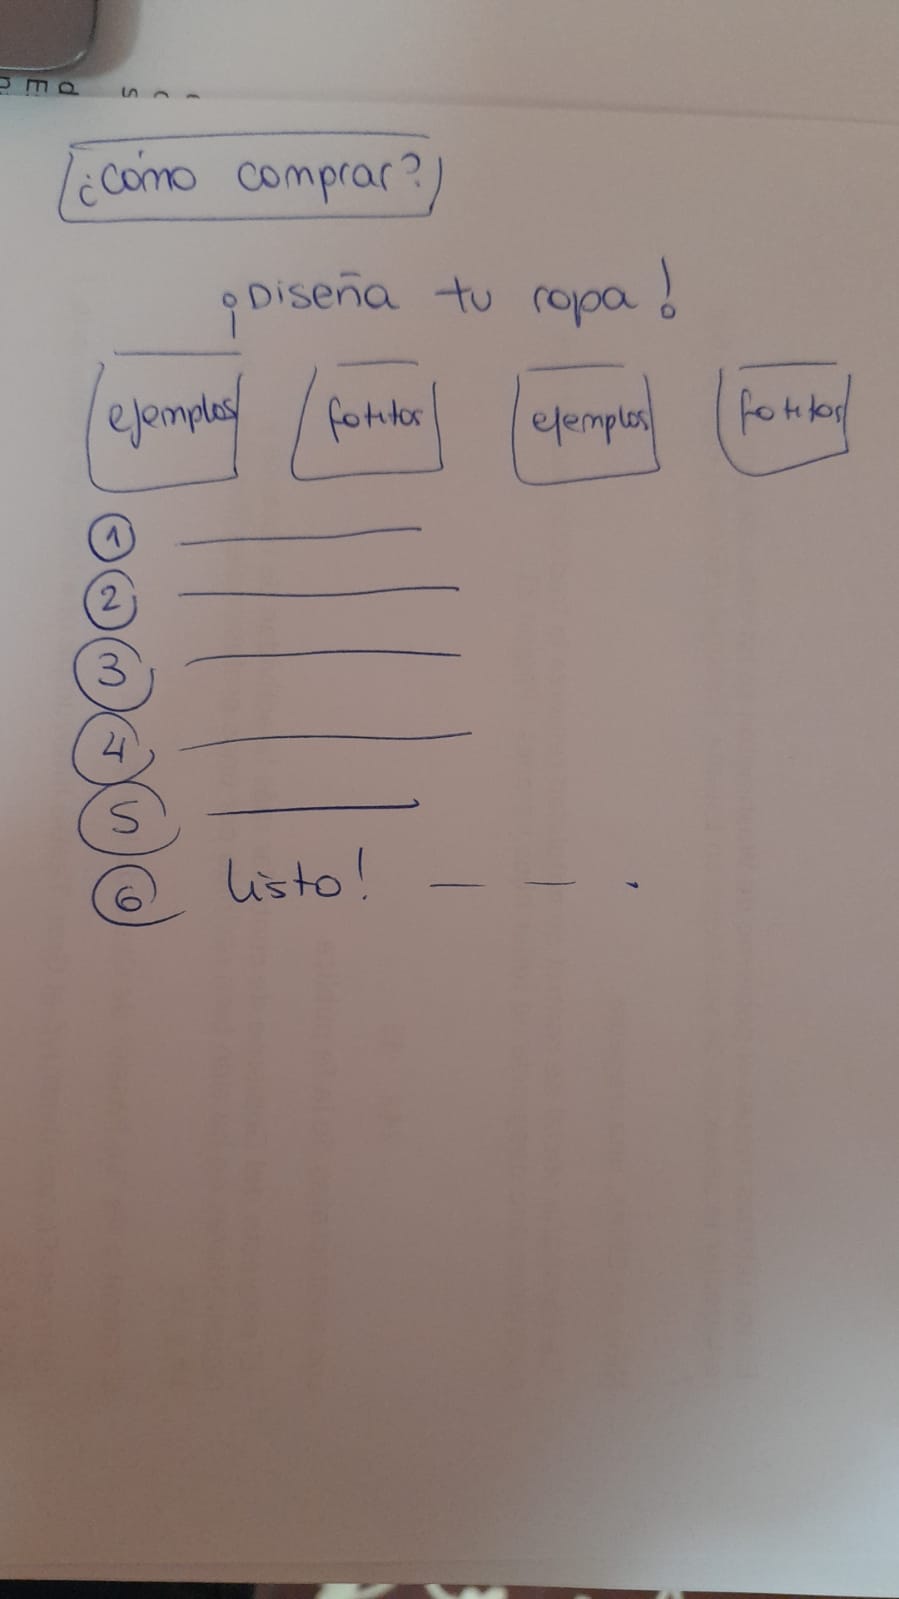 ¿Cómo comprar?
¡Diseña tu ropa!
ejemplos fotitos ejemplos fotitos
1
2
3
4
5
6 listo!